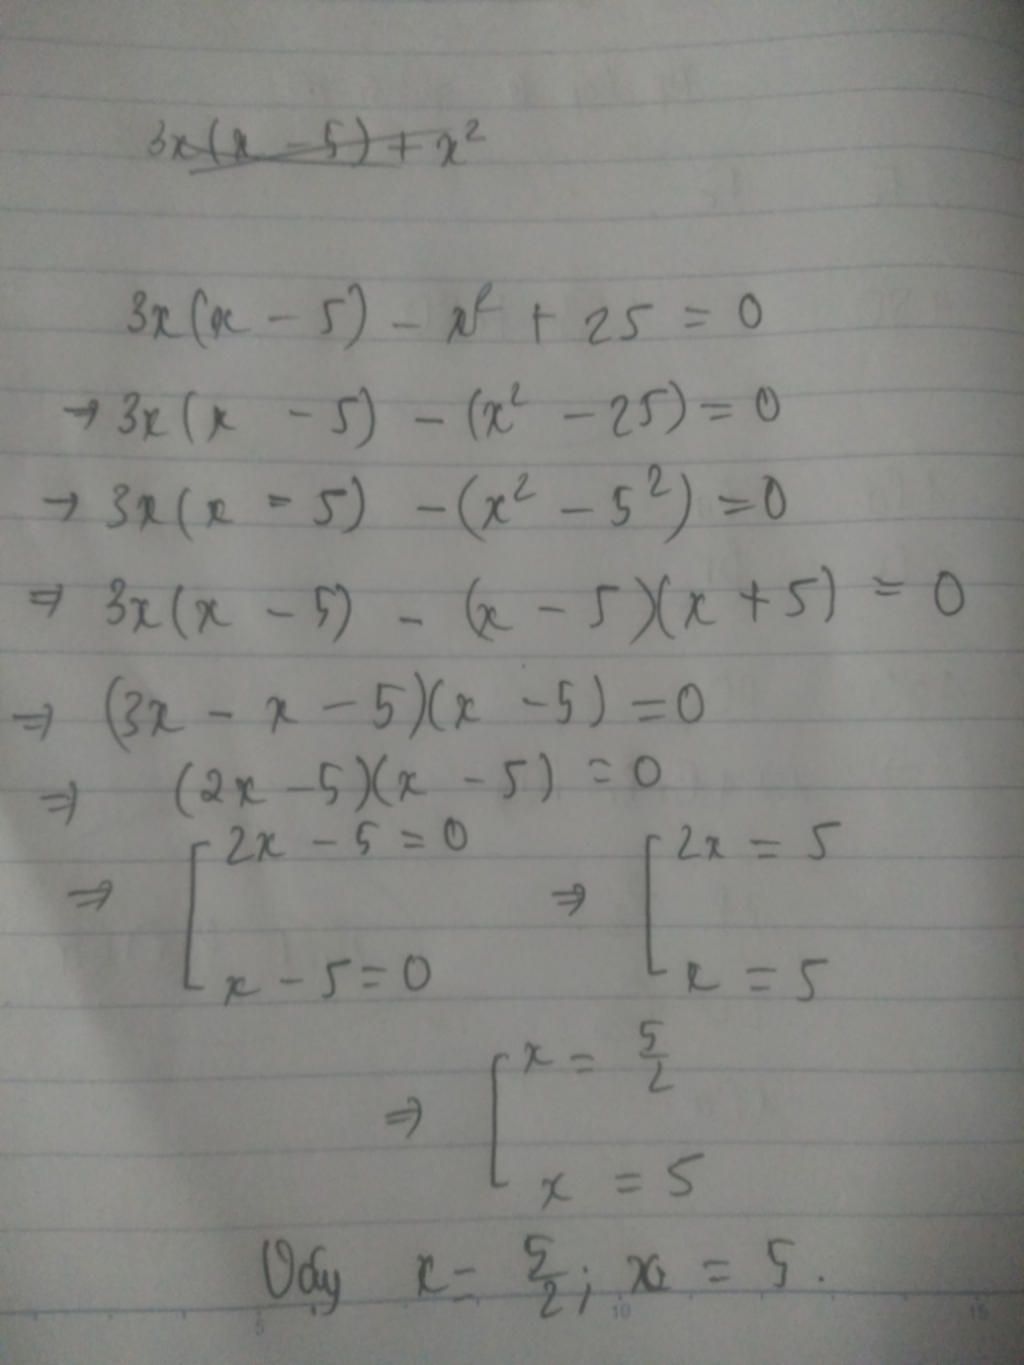 3x(x - 5) + x²
3x(x - 5) - x² + 25 = 0
→ 3x(x - 5) - (x² - 25) = 0
→ 3x(x - 5) - (x² - 5²) = 0
⇒ 3x(x - 5) - (x - 5)(x + 5) = 0
⇒ (3x - x - 5)(x - 5) = 0
⇒ (2x - 5)(x - 5) = 0
⇒ [ 2x - 5 = 0 ⇒ [ 2x = 5
x - 5 = 0 x = 5
⇒ [ x = 5/2
x = 5
Vậy x = 5/2; x = 5.
5 10 15